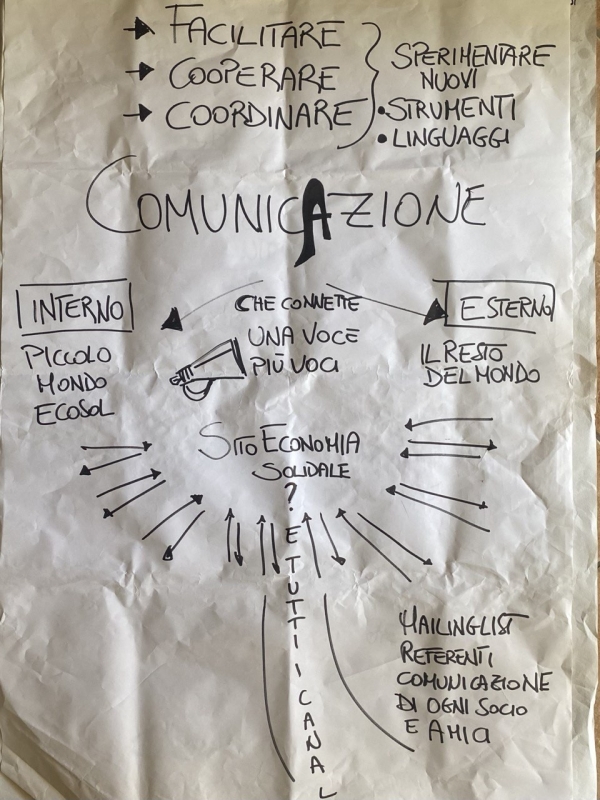 → FACILITARE
→ COOPERARE
→ COORDINARE
SPERIMENTARE
NUOVI
• STRUMENTI
• LINGUAGGI
COMUNICAZIONE
INTERNO
PICCOLO
MONDO
ECOSOL
CHE CONNETTE
UNA VOCE
PIÙ VOCI
ESTERNO
IL RESTO
DEL MONDO
SITO ECONOMIA
SOLIDALE
?
E TUTTI I CANAL
MAILINGLIST
REFERENTI
COMUNICAZIONE
DI OGNI SOCIO
E AMICI